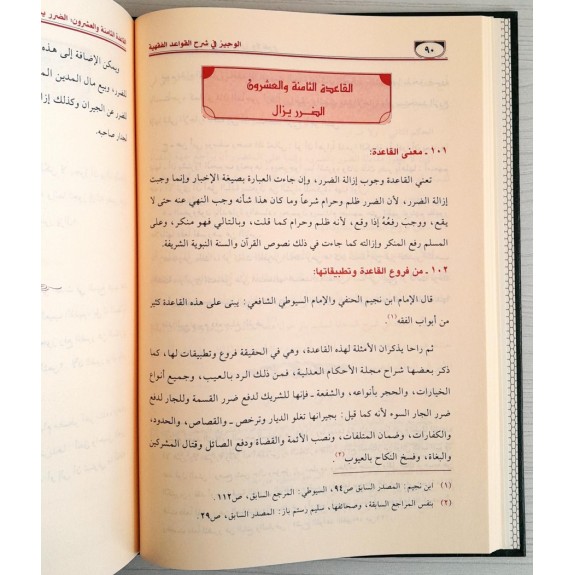 ٩٠
الوجيز في شرح القواعد الفقهية
القاعدة الثامنة والعشرون
الضرر يزال
١٠١ ـ معنى القاعدة:
تعني القاعدة وجوب إزالة الضرر، وإن جاءت العبارة بصيغة الإخبار وإنما وجبت
إزالة الضرر، لأن الضرر ظلم وحرام شرعاً وما كان هذا شأنه وجب النهي عنه حتى لا
يقع، ووجب رفعُهُ إذا وقع، لأنه ظلم وحرام كما قلت، وبالتالي فهو منكر، وعلى
المسلم رفع المنكر وإزالته كما جاءت في ذلك نصوص القرآن والسنة النبوية الشريفة.
١٠٢ ـ من فروع القاعدة وتطبيقاتها:
قال الإمام ابن نجيم الحنفي والإمام السيوطي الشافعي: يبنى على هذه القاعدة كثير
من أبواب الفقه(١).
ثم راحا يذكران الأمثلة لهذه القاعدة، وهي في الحقيقة فروع وتطبيقات لها، كما
ذكر بعضها شراح مجلة الأحكام العدلية، فمن ذلك الرد بالعيب، وجميع أنواع
الخيارات، والحجر بأنواعه، والشفعة ـ فإنها للشريك لدفع ضرر القسمة وللجار لدفع
ضرر الجار السوء لأنه كما قيل: بجيرانها تغلو الديار وترخص ـ والقصاص، والحدود،
والكفارات، وضمان المتلفات، ونصب الأئمة والقضاة ودفع الصائل وقتال المشركين
والبغاة، وفسخ النكاح بالعيوب(٢).
(١) ابن نجيم: المصدر السابق ص٩٤، السيوطي: المرجع السابق، ص١١٢.
(٢) بنفس المراجع السابقة، وصحائفها، سليم رستم باز: المصدر السابق، ص٢٩.
القاعدة الثامنة والعشرون: الضرر
ويمكن الإضافة إلى هذه
للضرر، وبيع مال المدين
للضرر عن الجيران وكذلك
لجدار صاحبه.